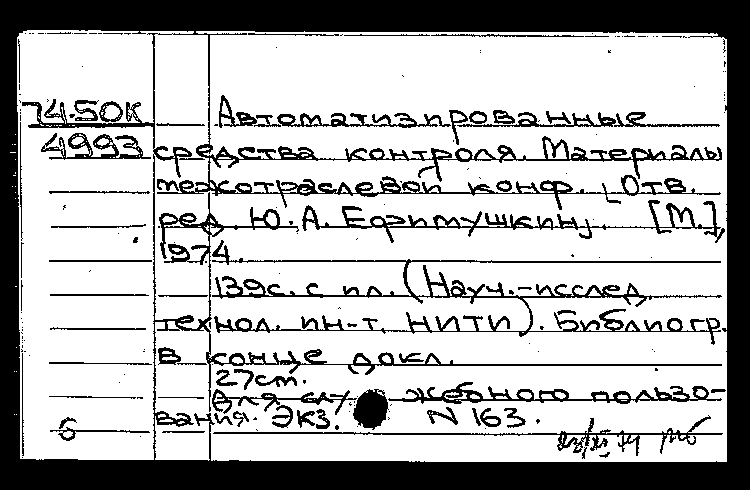 74.50К Автоматизированные
4993 средства контроля. Материалы
межотраслевой конф. [Отв.
ред. Ю.А. Ефимушкин]. [М.],
1974.
139с. с ил. (Науч.-исслед.
технол. ин-т. НИТИ). Библиогр.
в конце докл.
27см.
Для служебного пользо-
вания. Экз. N 163.
б